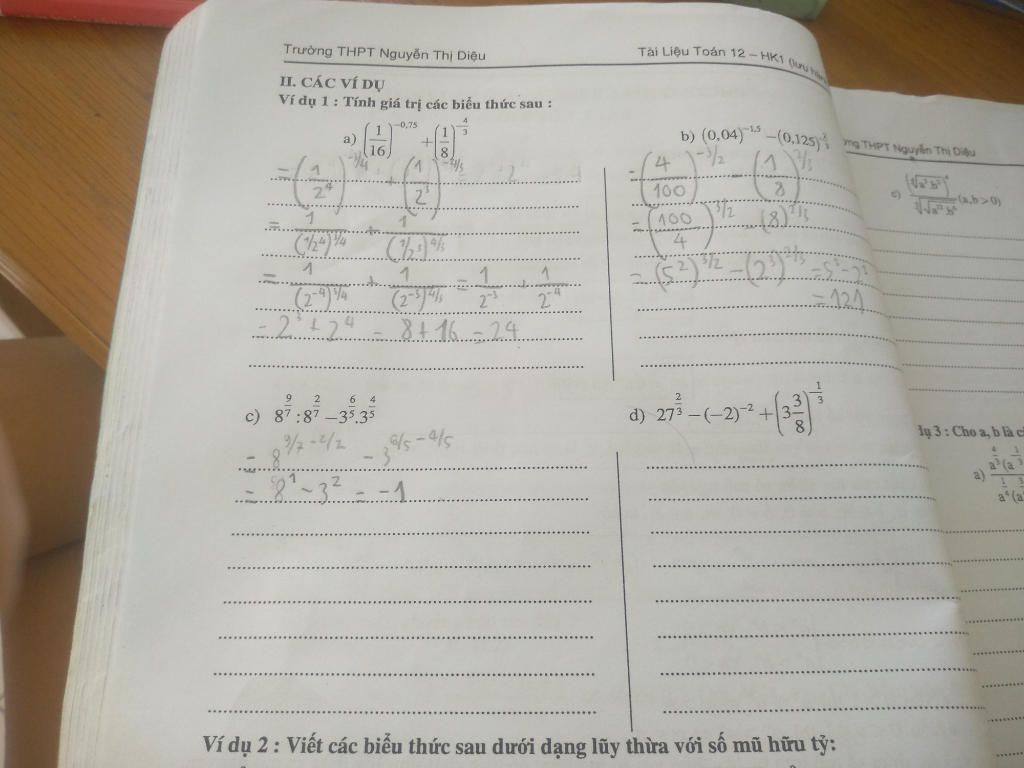 Trường THPT Nguyễn Thị Diệu
Tài Liệu Toán 12 – HK1 (lưu
II. CÁC VÍ DỤ
Ví dụ 1 : Tính giá trị các biểu thức sau :
a) (1/16)^-0,75 + (1/8)^-4/3
= (1/2^4)^-3/4 + (1/2^3)^-4/3
= 1/(1/2^4)^3/4 + 1/(1/2^3)^4/3
= 1/(2^-4)^3/4 + 1/(2^-3)^4/3 = 1/2^-3 + 1/2^-4
= 2^3 + 2^4 = 8 + 16 = 24
b) (0,04)^-1,5 – (0,125)^-2/3
= (4/100)^-3/2 – (1/8)^-2/3
= (100/4)^3/2 – (8)^2/3
= (5^2)^3/2 – (2^3)^2/3 = 5^3 – 2^2
= 121
c) 8^9/7 : 8^2/7 – 3^6/5 . 3^4/5
= 8^9/7 – 2/7 – 3^6/5 – 4/5
= 8^1 – 3^2 = -1
d) 27^2/3 – (–2)^–2 + (3 3/8)^-1/3
Ví dụ 2 : Viết các biểu thức sau dưới dạng lũy thừa với số mũ hữu tỷ:
THPT Nguyễn Thị Diệu
(a,b > 0)
3 : Cho a, b là
a)